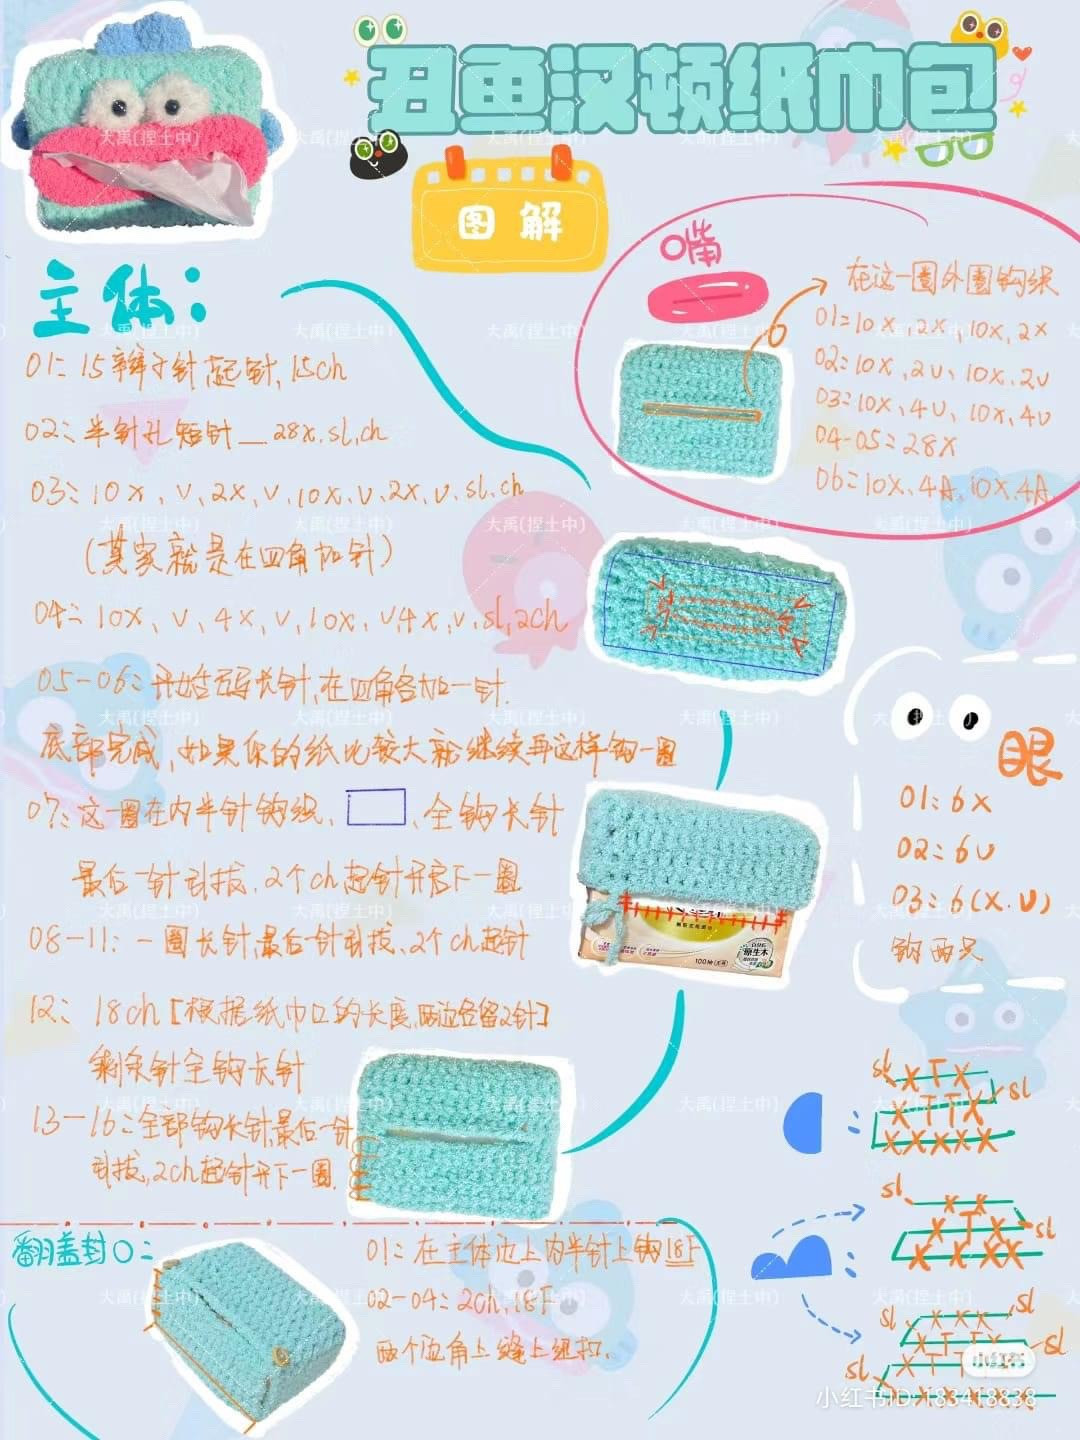 丑鱼汉顿纸巾包
图解
主体:
01: 15辫子针起针, 15ch
02: 半针孔短针_28x.sl.ch
03: 10x、v、2x、v、10x、v、2x、v、sl、ch
(其实就是在四角加针)
04= 10x、v、4x、v、10x、v4x、v、sl,2ch
05-06: 开始写长针,在四角各加一针.
底部完成,如果你的纸比较大就继续再这样钩一圈
07: 这一圈在内半针钩织、 、全钩长针
最后一针引拔、2个ch起针开启下一圈
08-11: 一圈长针,最后一针引拔、2个ch起针
12: 18ch [根据纸巾口的长度,两边各留2针]
剩余针全钩长针
13-16: 全部钩长针,最后一针
引拔,2ch起针开下一圈.
嘴
在这一圈外圈钩织
01=10X、2X、10X、2X
02=10X、2V、10X、2V
03=10X、4V、10X、4V
04-05=28X
06=10X、4A、10X、4A
眼
01: 6X
02: 6V
03: 6(X.V)
钩两只
100抽
原生木
sl XTX
XTTX sl
XXXXX
sl XX
XTX sl
XXXX
sl XXX sl
XTTX sl
sl XTT
翻盖封口:
01: 在主体边上内半针上钩18F
02-04: 2ch, 18F
两个边角上缝上纽扣.
小红书
小红书ID:183418838
大禹(捏土中)